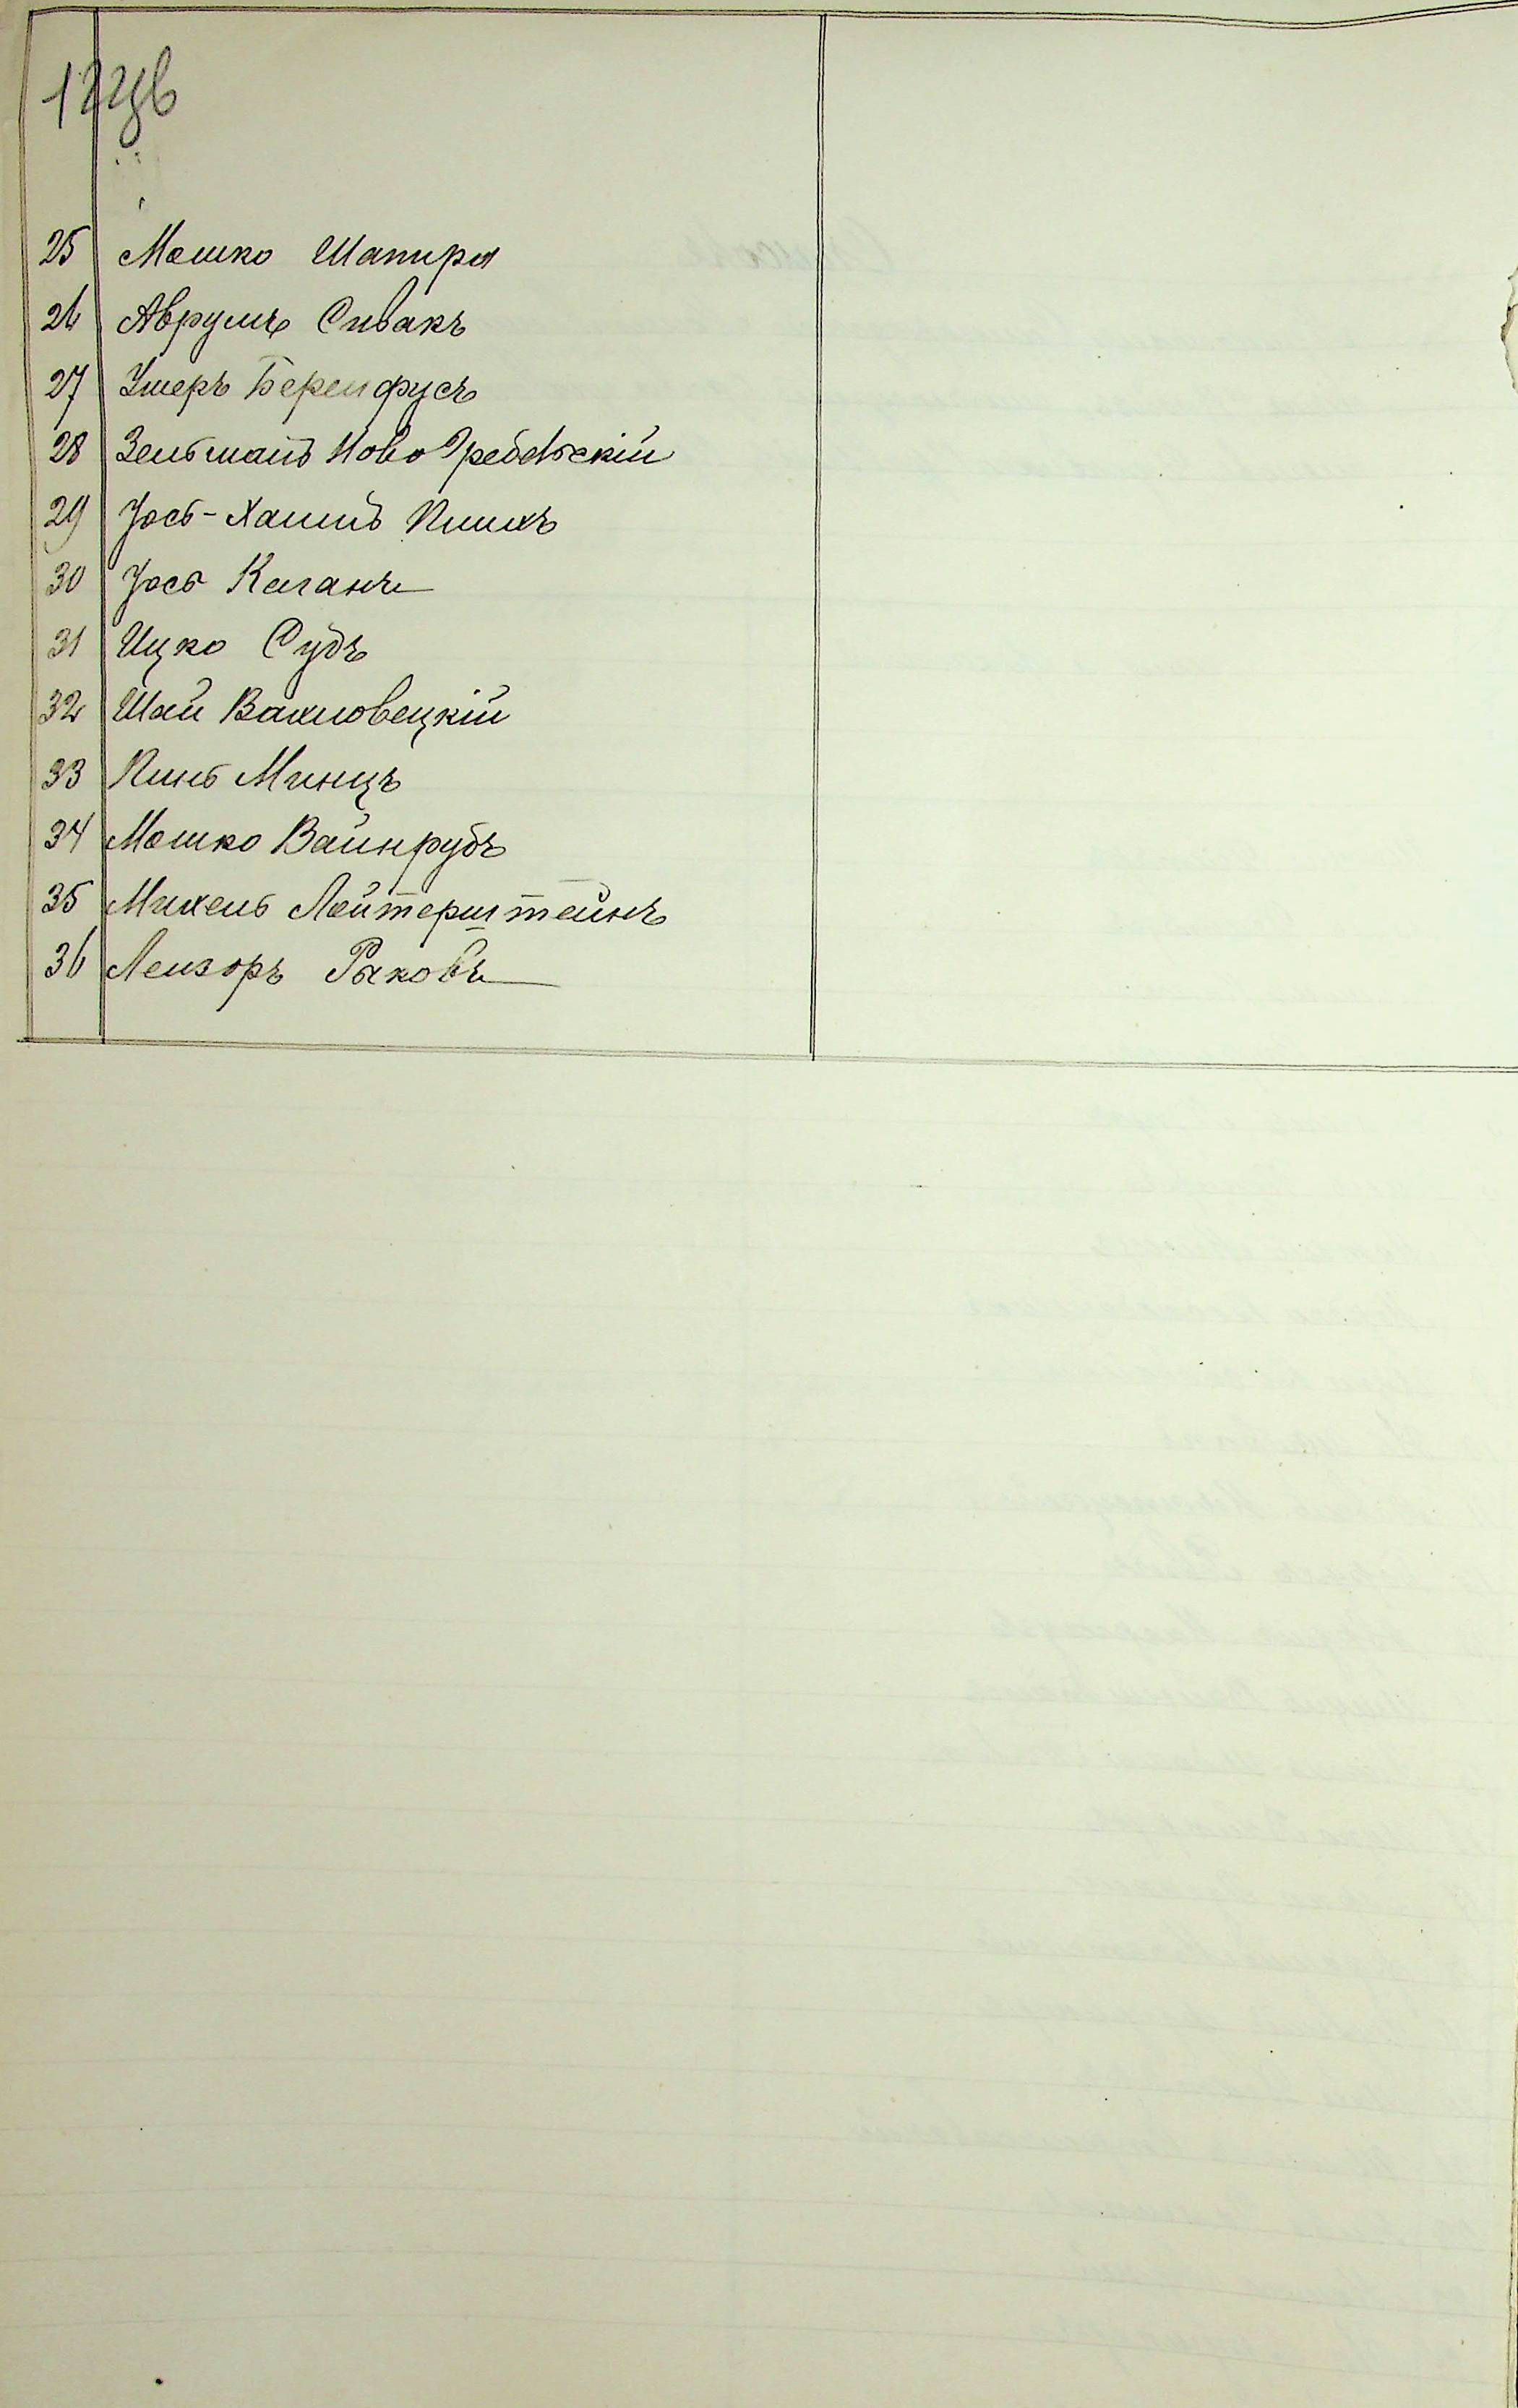 25 Мошко Шапиро
26 Аврумъ Сивакъ
27 Ушеръ Беренфусъ
28 Зельманъ Новогребельскій
29 Іось-Хаимъ
30 Іось Каганъ
31 Ицко Судъ
32 Шай Вахновецкій
33 Пинь Минцъ
34 Мошко Вайнрубъ
35 Михель Лейтерштейнъ
36 Лейзоръ Раковъ